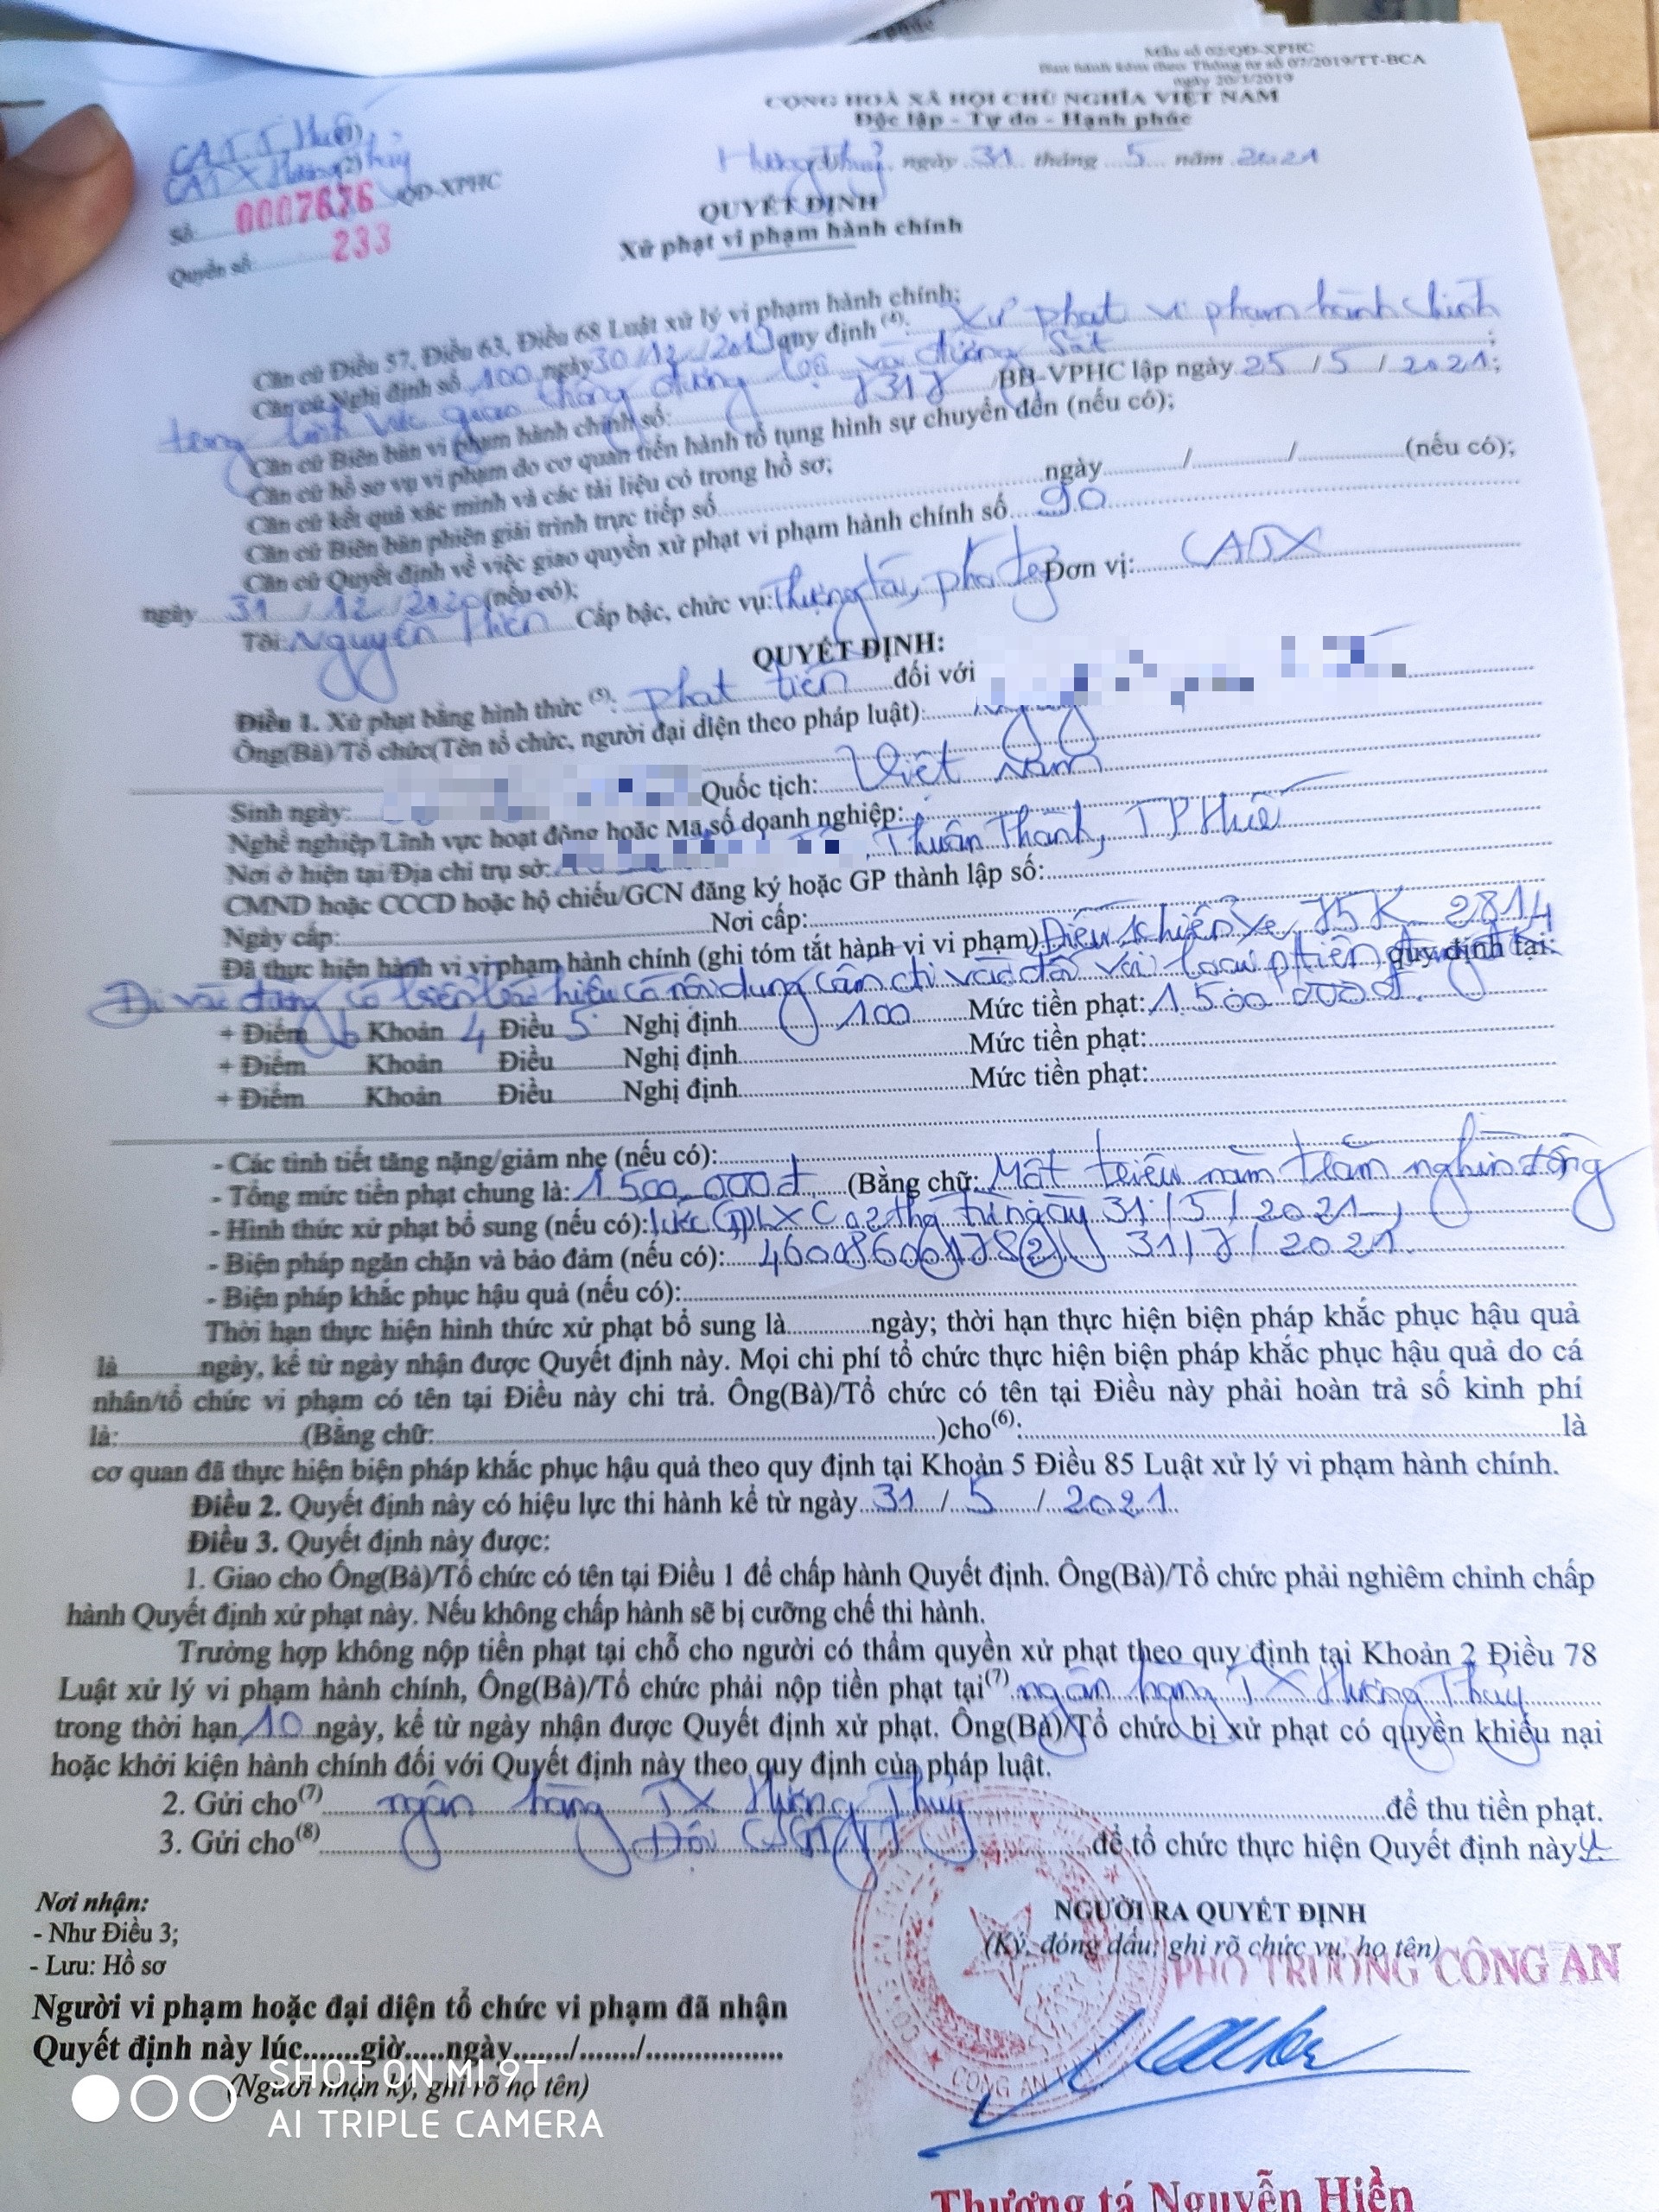 Mẫu số 02/QĐ-XPHC
Ban hành kèm theo Thông tư số 07/2019/TT-BCA
ngày 20/3/2019
CỘNG HOÀ XÃ HỘI CHỦ NGHĨA VIỆT NAM
Độc lập - Tự do - Hạnh phúc
CA T.T.Huế(1)
CATX Hương Thủy(2)
Số: 0007676 QĐ-XPHC
Quyển số: 233
Hương Thuỷ, ngày 31 tháng 5 năm 2021
QUYẾT ĐỊNH
Xử phạt vi phạm hành chính
Căn cứ Điều 57, Điều 63, Điều 68 Luật xử lý vi phạm hành chính;
Căn cứ Nghị định số 100 ngày 30/12/2019 quy định (4): Xử phạt vi phạm hành chính
trong lĩnh vực giao thông đường bộ và đường sắt ;
Căn cứ Biên bản vi phạm hành chính số: 7317 /BB-VPHC lập ngày 25/5/2021;
Căn cứ hồ sơ vụ vi phạm do cơ quan tiến hành tố tụng hình sự chuyển đến (nếu có);
Căn cứ kết quả xác minh và các tài liệu có trong hồ sơ;
Căn cứ Biên bản phiên giải trình trực tiếp số ngày / / (nếu có);
Căn cứ Quyết định về việc giao quyền xử phạt vi phạm hành chính số 90
ngày 31/12/2020 (nếu có);
Tôi: Nguyễn Hiền Cấp bậc, chức vụ: Thượng tá, phó tg Đơn vị: CATX
QUYẾT ĐỊNH:
Điều 1. Xử phạt bằng hình thức (5): phạt tiền đối với
Ông(Bà)/Tổ chức(Tên tổ chức, người đại diện theo pháp luật):
Sinh ngày: Quốc tịch: Việt Nam
Nghề nghiệp/Lĩnh vực hoạt động hoặc Mã số doanh nghiệp:
Nơi ở hiện tại/Địa chỉ trụ sở: , Thuận Thành, TP Huế
CMND hoặc CCCD hoặc hộ chiếu/GCN đăng ký hoặc GP thành lập số:
Ngày cấp: Nơi cấp:
Đã thực hiện hành vi vi phạm hành chính (ghi tóm tắt hành vi vi phạm) Điều khiển xe 75K 2814
Đi vào đường có biển báo hiệu có nội dung cấm đi vào đối với loại phtiện quy định tại:
+ Điểm b Khoản 4 Điều 5 Nghị định 100 Mức tiền phạt: 1.500.000đ
+ Điểm Khoản Điều Nghị định Mức tiền phạt:
+ Điểm Khoản Điều Nghị định Mức tiền phạt:
- Các tình tiết tăng nặng/giảm nhẹ (nếu có):
- Tổng mức tiền phạt chung là: 1.500.000đ (Bằng chữ: Một triệu năm trăm nghìn đồng
- Hình thức xử phạt bổ sung (nếu có): tước GPLX C 02 thg từ ngày 31/5/2021,
- Biện pháp ngăn chặn và bảo đảm (nếu có): 31/7/2021.
- Biện pháp khắc phục hậu quả (nếu có):
Thời hạn thực hiện hình thức xử phạt bổ sung là ngày; thời hạn thực hiện biện pháp khắc phục hậu quả
là ngày, kể từ ngày nhận được Quyết định này. Mọi chi phí tổ chức thực hiện biện pháp khắc phục hậu quả do cá
nhân/tổ chức vi phạm có tên tại Điều này chi trả. Ông(Bà)/Tổ chức có tên tại Điều này phải hoàn trả số kinh phí
là: (Bằng chữ: )cho(6): là
cơ quan đã thực hiện biện pháp khắc phục hậu quả theo quy định tại Khoản 5 Điều 85 Luật xử lý vi phạm hành chính.
Điều 2. Quyết định này có hiệu lực thi hành kể từ ngày 31/5/2021.
Điều 3. Quyết định này được:
1. Giao cho Ông(Bà)/Tổ chức có tên tại Điều 1 để chấp hành Quyết định. Ông(Bà)/Tổ chức phải nghiêm chỉnh chấp
hành Quyết định xử phạt này. Nếu không chấp hành sẽ bị cưỡng chế thi hành.
Trường hợp không nộp tiền phạt tại chỗ cho người có thẩm quyền xử phạt theo quy định tại Khoản 2 Điều 78
Luật xử lý vi phạm hành chính, Ông(Bà)/Tổ chức phải nộp tiền phạt tại(7) ngân hàng TX Hương Thủy
trong thời hạn 10 ngày, kể từ ngày nhận được Quyết định xử phạt. Ông(Bà)/Tổ chức bị xử phạt có quyền khiếu nại
hoặc khởi kiện hành chính đối với Quyết định này theo quy định của pháp luật.
2. Gửi cho(7) ngân hàng TX Hương Thủy để thu tiền phạt.
3. Gửi cho(8) Đội CSGTTT để tổ chức thực hiện Quyết định này
Nơi nhận:
- Như Điều 3;
- Lưu: Hồ sơ
Người vi phạm hoặc đại diện tổ chức vi phạm đã nhận
Quyết định này lúc.......giờ.....ngày......./......./.................
(Người nhận ký, ghi rõ họ tên)
NGƯỜI RA QUYẾT ĐỊNH
(Ký, đóng dấu; ghi rõ chức vụ, họ tên)
PHÓ TRƯỞNG CÔNG AN
Thượng tá Nguyễn Hiền
SHOT ON MI 9T
AI TRIPLE CAMERA